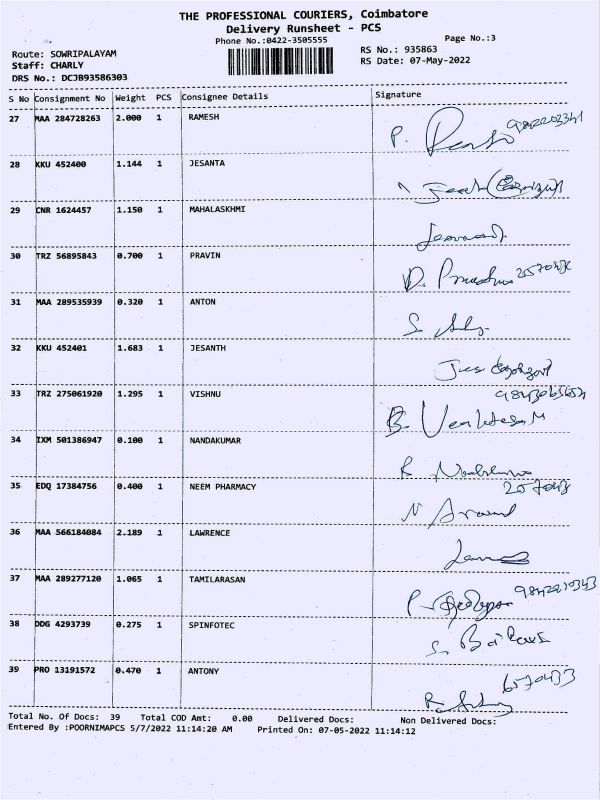 THE PROFESSIONAL COURIERS, Coimbatore
Delivery Runsheet - PCS
Phone No.:0422-3505555
Page No.:3
Route: SOWRIPALAYAM
RS No.: 935863
Staff: CHARLY
RS Date: 07-May-2022
DRS No.: DCJB93586303
S No Consignment No Weight PCS Consignee Details Signature
27 MAA 284728263 2.000 1 RAMESH P.
28 KKU 452400 1.144 1 JESANTA
29 CNR 1624457 1.150 1 MAHALASKHMI
30 TRZ 56895843 0.700 1 PRAVIN
31 MAA 289535939 0.320 1 ANTON S
32 KKU 452401 1.683 1 JESANTH
33 TRZ 275061920 1.295 1 VISHNU B. Venkatesan M
34 IXM 501386947 0.100 1 NANDAKUMAR R
35 EDQ 17384756 0.400 1 NEEM PHARMACY N Aravind
36 MAA 566184084 2.189 1 LAWRENCE
37 MAA 289277120 1.065 1 TAMILARASAN
38 DDG 4293739 0.275 1 SPINFOTEC S.
39 PRO 13191572 0.470 1 ANTONY 6570433
Total No. Of Docs: 39 Total COD Amt: 0.00 Delivered Docs: Non Delivered Docs:
Entered By :POORNIMAPCS 5/7/2022 11:14:20 AM Printed On: 07-05-2022 11:14:12